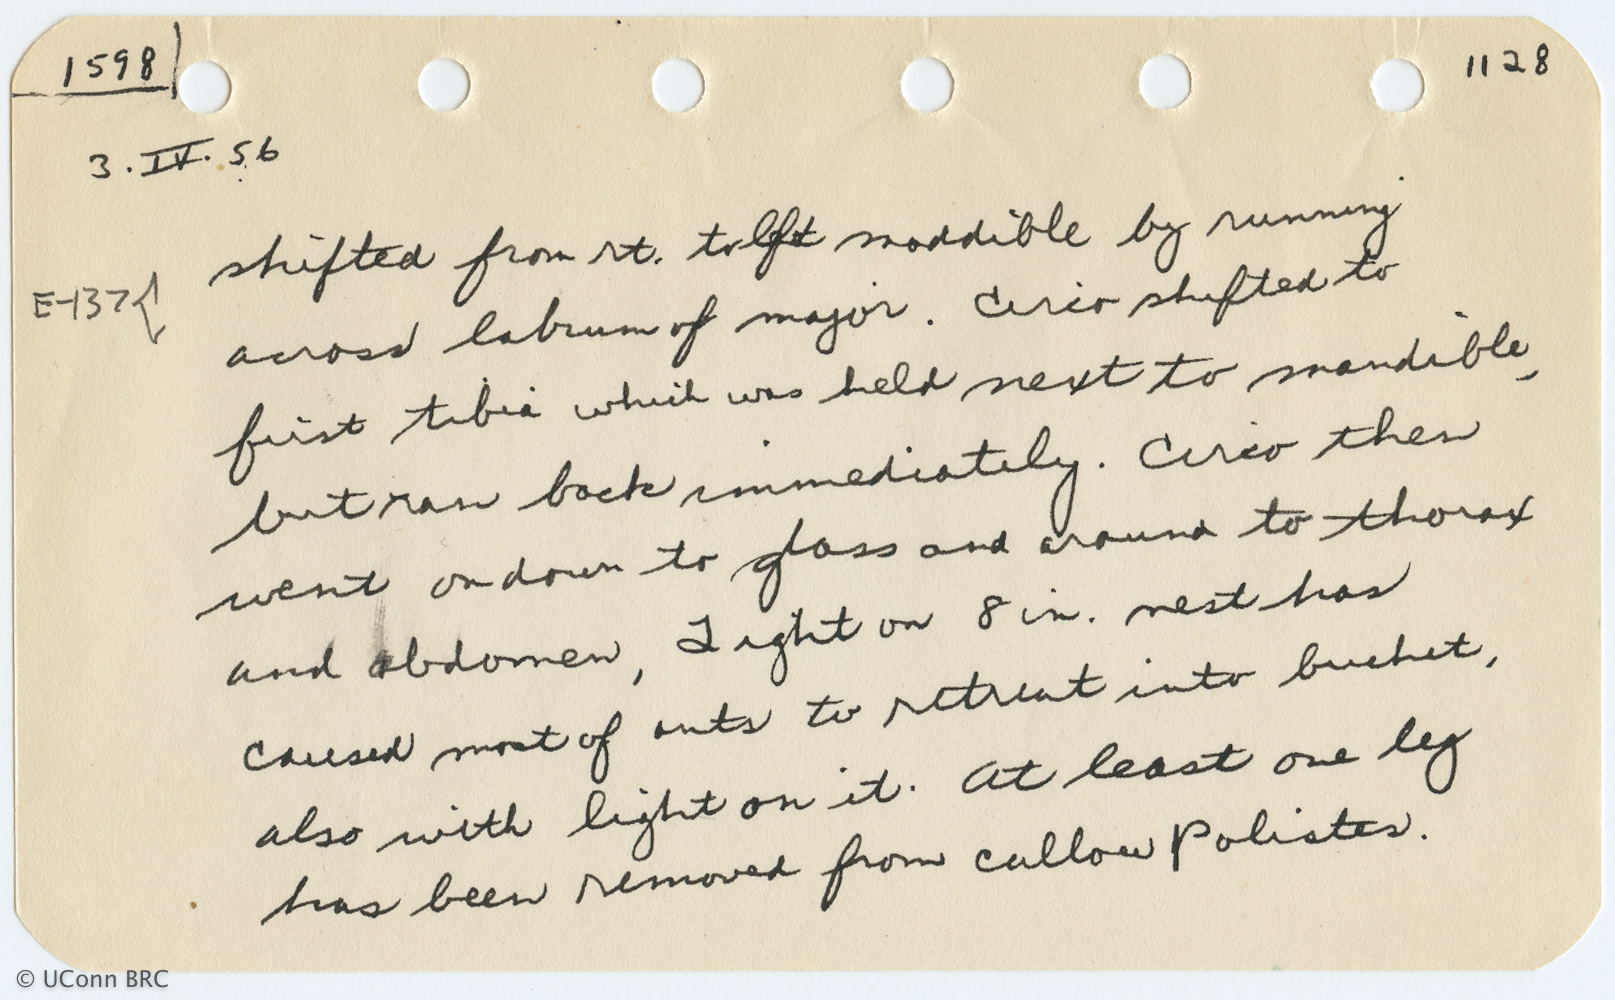 1598
1128
3.IV.56
shifted from rt. to lft maddible by running
E-137{
across labrum of major. Circo shifted to
first tibia which was held next to mandible,
but ran back immediately. Circo then
went on down to glass and around to thorax
and abdomen, Light on 8 in. nest has
caused most of ants to retreat into bucket,
also with light on it. At least one leg
has been removed from callow Polistes.
© UConn BRC